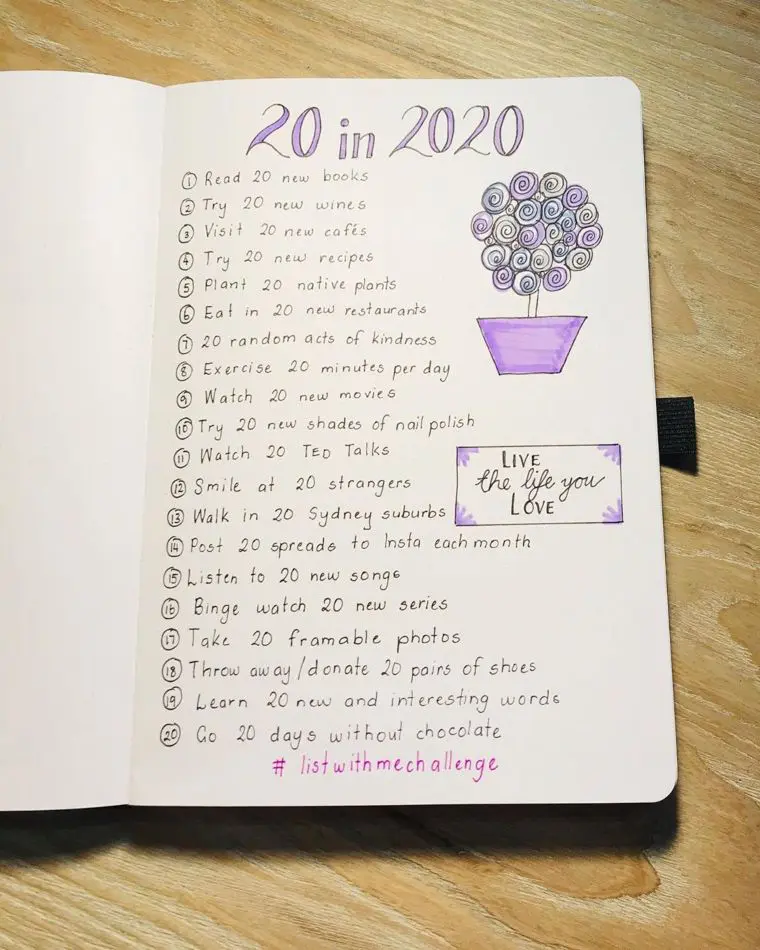 20 in 2020
① Read 20 new books
② Try 20 new wines
③ Visit 20 new cafés
④ Try 20 new recipes
⑤ Plant 20 native plants
⑥ Eat in 20 new restaurants
⑦ 20 random acts of kindness
⑧ Exercise 20 minutes per day
⑨ Watch 20 new movies
⑩ Try 20 new shades of nail polish
⑪ Watch 20 TED Talks
⑫ Smile at 20 strangers
⑬ Walk in 20 Sydney suburbs
⑭ Post 20 spreads to Insta each month
⑮ Listen to 20 new songs
⑯ Binge watch 20 new series
⑰ Take 20 framable photos
⑱ Throw away/donate 20 pairs of shoes
⑲ Learn 20 new and interesting words
⑳ Go 20 days without chocolate
# listwithmechallenge
LIVE
the life you
LOVE